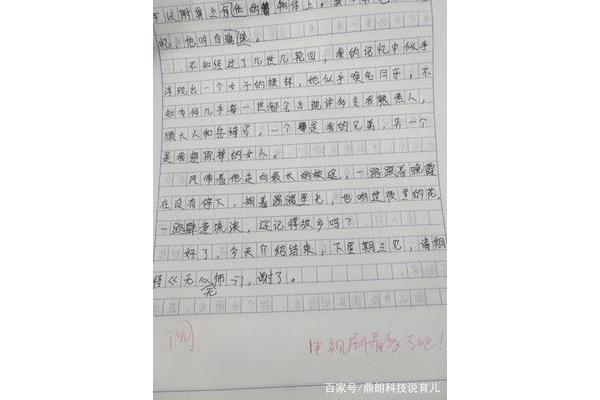 可从附身上有他的 物体上。
他叫白琉璃。
不知经过了几世几轮回，我的记忆中似乎
浮现出一个女子的模样，她似乎唤名月牙，不
知为何几乎每一世都会出现许多令我熟悉人，
顾大人和岳绮罗，一个是我的兄弟，另一个
是我想 的女人。
风带着他走向最长的旅途，一路跟着晚霞
在没有停下，朝着 里走，也吻过夜里的花，
一路肆意流浪，还记得故乡吗？
好了，今天介绍结束，下星期三见，请期
待《无心法师》，谢了。
阅
电视剧看多了吧！
百家号/鼎朗科技说育儿